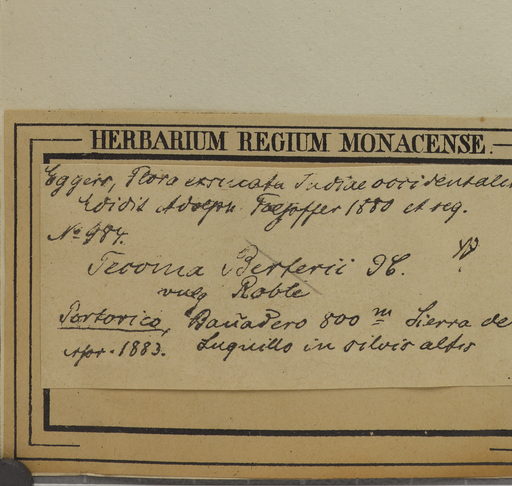 HERBARIUM REGIUM MONACENSE.
Eggers, Flora exsiccata Indiae occidentalis
Edidit Adolph Toepffer 1880 et seq.
No 984.
Tecoma Berterii
vulg Roble
Portorico, Bañadero 800 m Sierra de
Apr. 1883. Luquillo in silvis altis